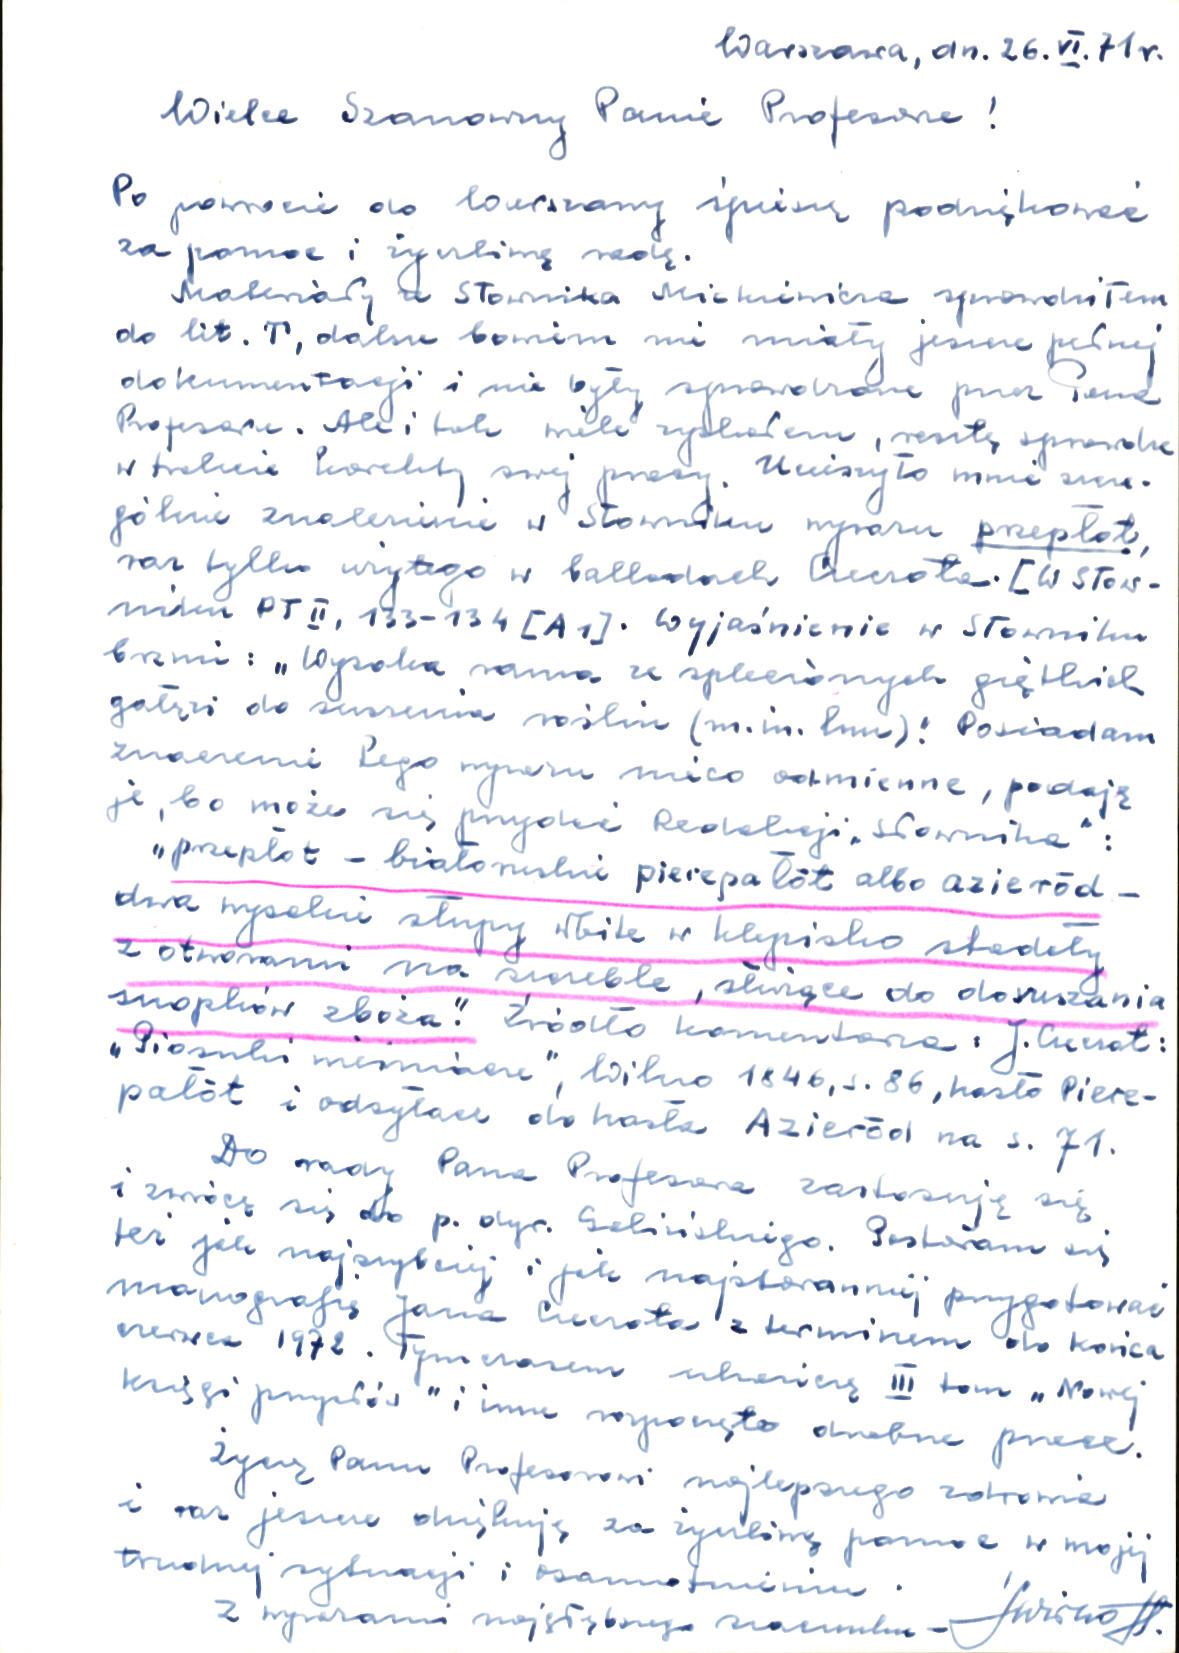 Warszawa, dn. 26.VI.71 r.
Wielce Szanowny Panie Profesorze!
Po powrocie do Warszawy śpieszę podziękować
za pomoc i życzliwą radę.
Materiały ze Słownika Mickiewicza sprawdziłem
do lit. T, dalsze bowiem nie miały jeszcze pełnej
dokumentacji i nie były sprawdzone przez Pana
Profesora. Ale i tak wiele zyskałem, resztę sprawdzę
w trakcie korekty swej pracy. Ucieszyło mnie szcze-
gólnie znalezienie w Słowniku wyrazu przepłot,
raz tylko użytego w balladach Czeczota. [W Słow-
niku PT II, 133-134 [A1]. Wyjaśnienie w Słowniku
brzmi: „Wysoka rama ze splecionych giętkich
gałęzi do suszenia roślin (m.in. lnu)! Posiadam
znaczenie tego wyrazu nieco odmienne, podaję
je, bo może się przydać Redakcji „Słownika":
„przepłot – białoruskie pierepałót albo azieród –
dwa wysokie słupy wbite w klepisko stodoły
z otworami na szczeble, służące do dosuszania
snopków zboża". Źródło komentarza: J. Czeczot:
„Piosnki wieśniacze", Wilno 1846, s. 86, hasło Piere-
pałót i odsyłacz do hasła Azieród na s. 71.
Do rady Pana Profesora zastosuję się
i zwrócę się do p. dyr. . Postaram się
też jak najszybciej i jak najstaranniej przygotować
monografię Jana Czeczota z terminem do końca
czerwca 1972. Tymczasem ukończę III tom „Nowej
księgi przysłów" i inne rozpoczęte drobne prace.
Życzę Panu Profesorowi najlepszego zdrowia
i raz jeszcze dziękuję za życzliwą pomoc w mojej
trudnej sytuacji i osamotnieniu.
Z wyrazami najgłębszego szacunku – Świrko St.